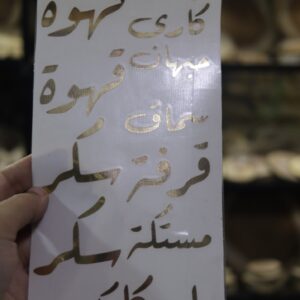 كاري قهوة
حبهان
سماق قهوة
قرفة سكر
مستكة سكر